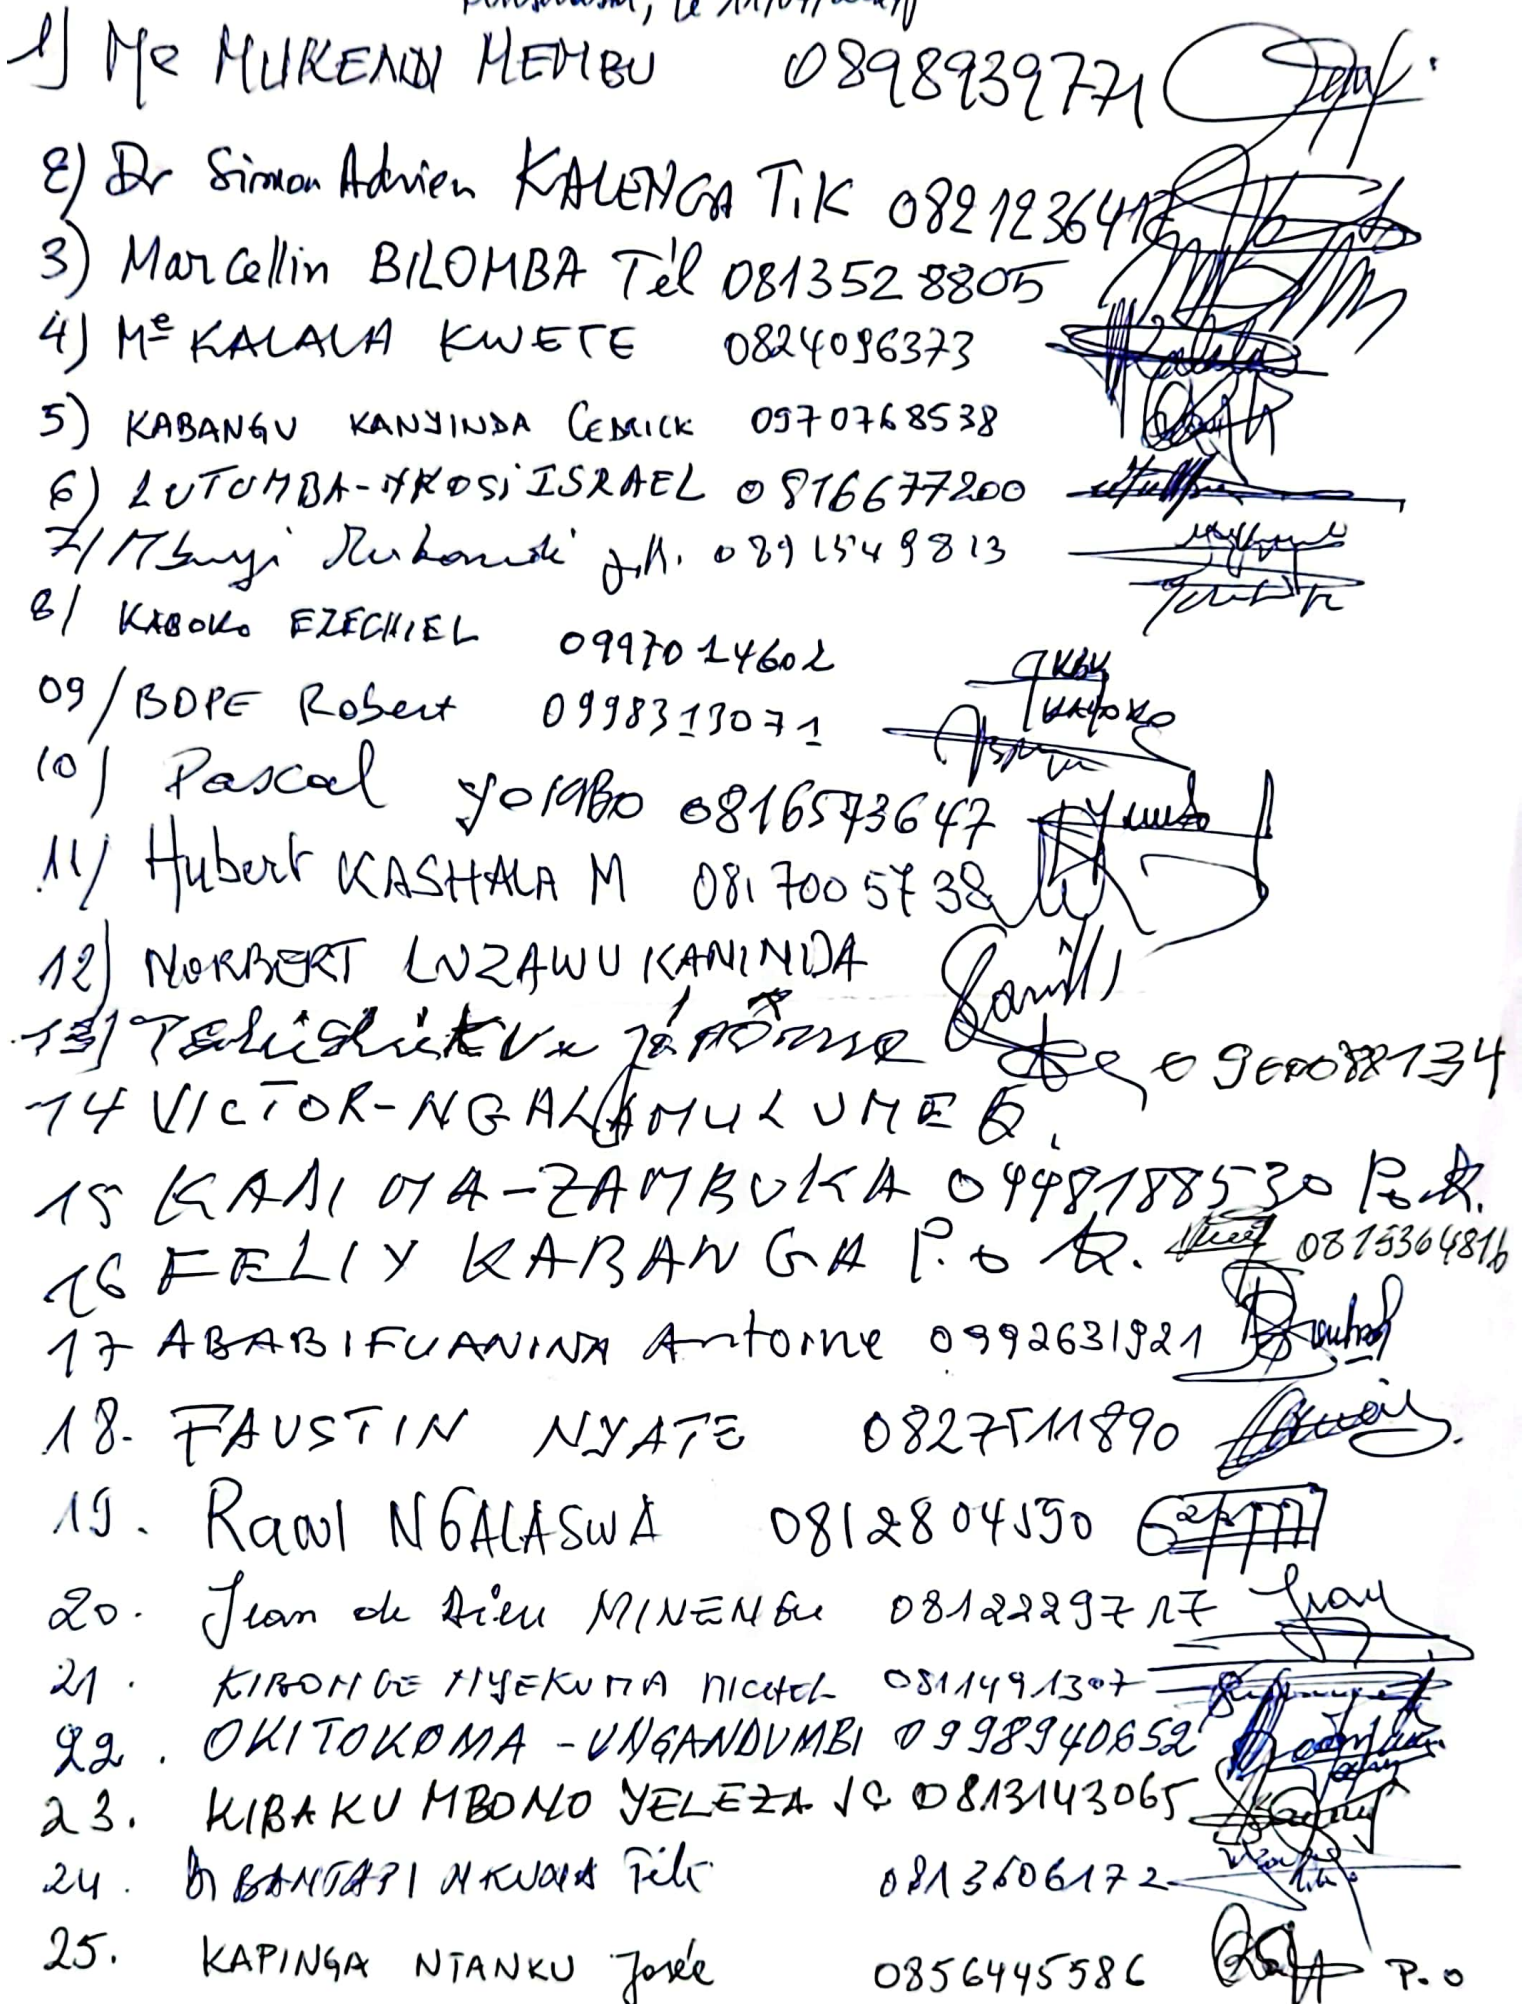 1) Me MUKENDI MEMBU 0898939771
2) Dr Simon Adrien KALENGA TIK 082123641
3) Marcellin BILOMBA Tél 0813528805
4) Me KALALA KWETE 0824096373
5) KABANGU KANYINDA CEDRICK 0970768538
6) LUTUMBA-NKOSi ISRAEL 0816677200
7/ Mbuyi J.M. 0891549813
8/ KABOKO EZECHIEL 0997014602
09/ BOPE Robert 0998313071
10) Pascal YOMBO 0816573647
11/ Hubert KASHALA M 0817005738
12) NORBERT LUZAWU KANINDA
13)
14 VICTOR-NGALAMULUME
15 KADIMA-ZAMBUKA 0998188530 P.O
16 FELIX KABANGA P.O 0815364816
17 ABABIFUANINA Antoine 0992631921
18. FAUSTIN NYATE 0827511890
19. Raoul NGALASWA 0812804590
20. Jean de Dieu MINENGU 0812229717
21. KIBONGE NYEKUMA MICHEL 0811491307
22. OKITOKOMA -UNGANDUMBI 0998940652
23. KIBAKU MBONO YELEZA JC 0813143065
24. 0813606172
25. KAPINGA NTANKU Josée 0856445586 P.O